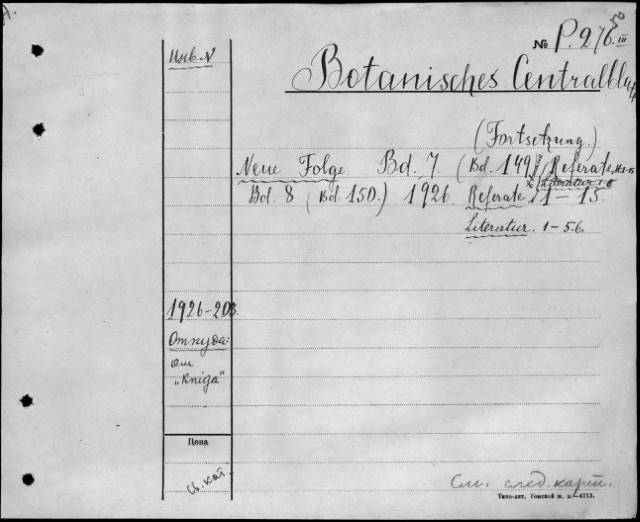 № P. 276. III
Botanisches Centralblatt
Инв. N
(Fortsetzung.)
Neue Folge. Bd. 7. (Bd. 149) Referate, H. 1-15
Literatur 1-
Bd. 8 (Bd. 150.) 1926 Referate 1-15
Literatur. 1-56.
1926-203.
Откуда:
от
"Kniga"
Цена
См. след. карт.
Типо-лит. Томской ж. д.—6713.